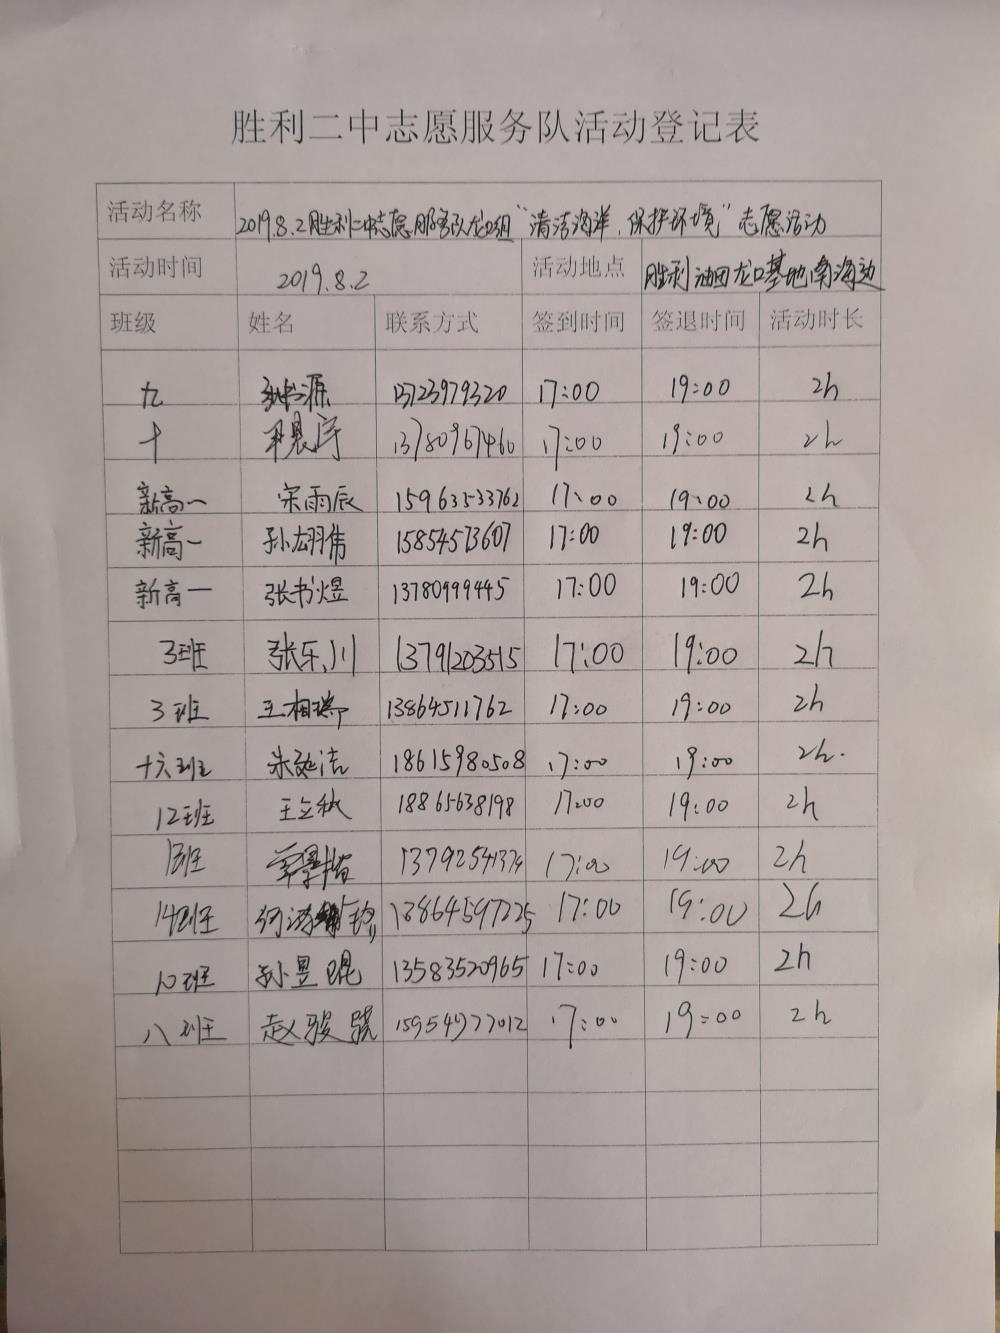 胜利二中志愿服务队活动登记表
活动名称 2019.8.2胜利二中志愿服务队龙口组“清洁海洋,保护环境”志愿活动
活动时间 2019.8.2 活动地点 胜利油田龙口基地南海边
班级 姓名 联系方式 签到时间 签退时间 活动时长
九 源 13723979320 17:00 19:00 2h
十 13780967460 17:00 19:00 2h
新高一 宋雨辰 15963533762 17:00 19:00 2h
新高一 孙翊伟 15854573607 17:00 19:00 2h
新高一 张书煜 13780999445 17:00 19:00 2h
3班 张乐川 13791203515 17:00 19:00 2h
3班 王相瑞 13864511762 17:00 19:00 2h
十六班 朱延洁 18615980508 17:00 19:00 2h.
12班 王立秋 18865638198 17:00 19:00 2h
班 13792541374 17:00 19:00 2h
14班 13864597225 17:00 19:00 2h
10班 孙昱琨 13583520965 17:00 19:00 2h
八班 赵骏骁 15954977012 17:00 19:00 2h